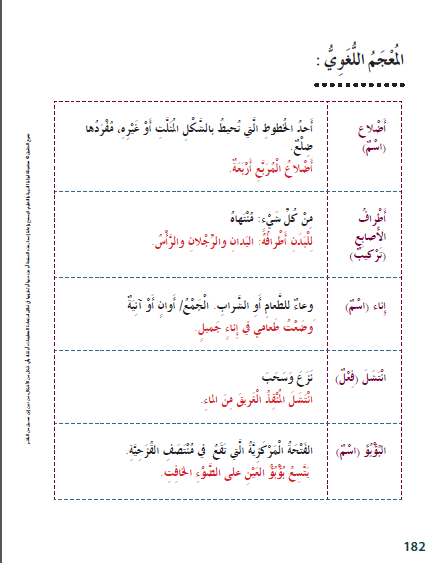 المُعْجَمُ اللُّغَوِيُّ :
أَضْلاع
(اسْمٌ)
أَحَدُ الخُطوطِ الَّتي تُحيطُ بالشَّكْلِ المُثَلَّثِ أَوْ غَيْرِهِ، مُفْرَدُها
ضِلْعٌ.
أَضْلاعُ الْمُرَبَّعِ أَرْبَعَةٌ.
أَطْرافُ
الأَصابِعِ
(تَرْكيبٌ)
مِنْ كُلِّ شَيْءٍ: مُنْتَهاهُ
لِلْبَدَنِ أَطْرافُهُ: اليَدانِ والرِّجْلانِ والرَّأْسُ.
إِناء (اسْمٌ)
وعاءٌ للطَّعامِ أَوِ الشَّرابِ. الْجَمْعُ/ أَوانٍ أَوْ آنِيَةٌ
وَضَعْتُ طَعامي في إِناءٍ جَميلٍ.
انْتَشَلَ (فِعْلٌ)
نَزَعَ وَسَحَبَ
انْتَشَلَ الْمُنْقِذُ الْغَريقَ مِنَ الماءِ.
البُؤْبُؤُ (اسْمٌ)
الفَتْحَةُ الْمَرْكَزِيَّةُ الَّتي تَقَعُ في مُنْتَصَفِ القُزَحِيَّةِ.
يَتَّسِعُ بُؤْبُؤُ العَيْنِ على الضَّوْءِ الخافِتِ.
182